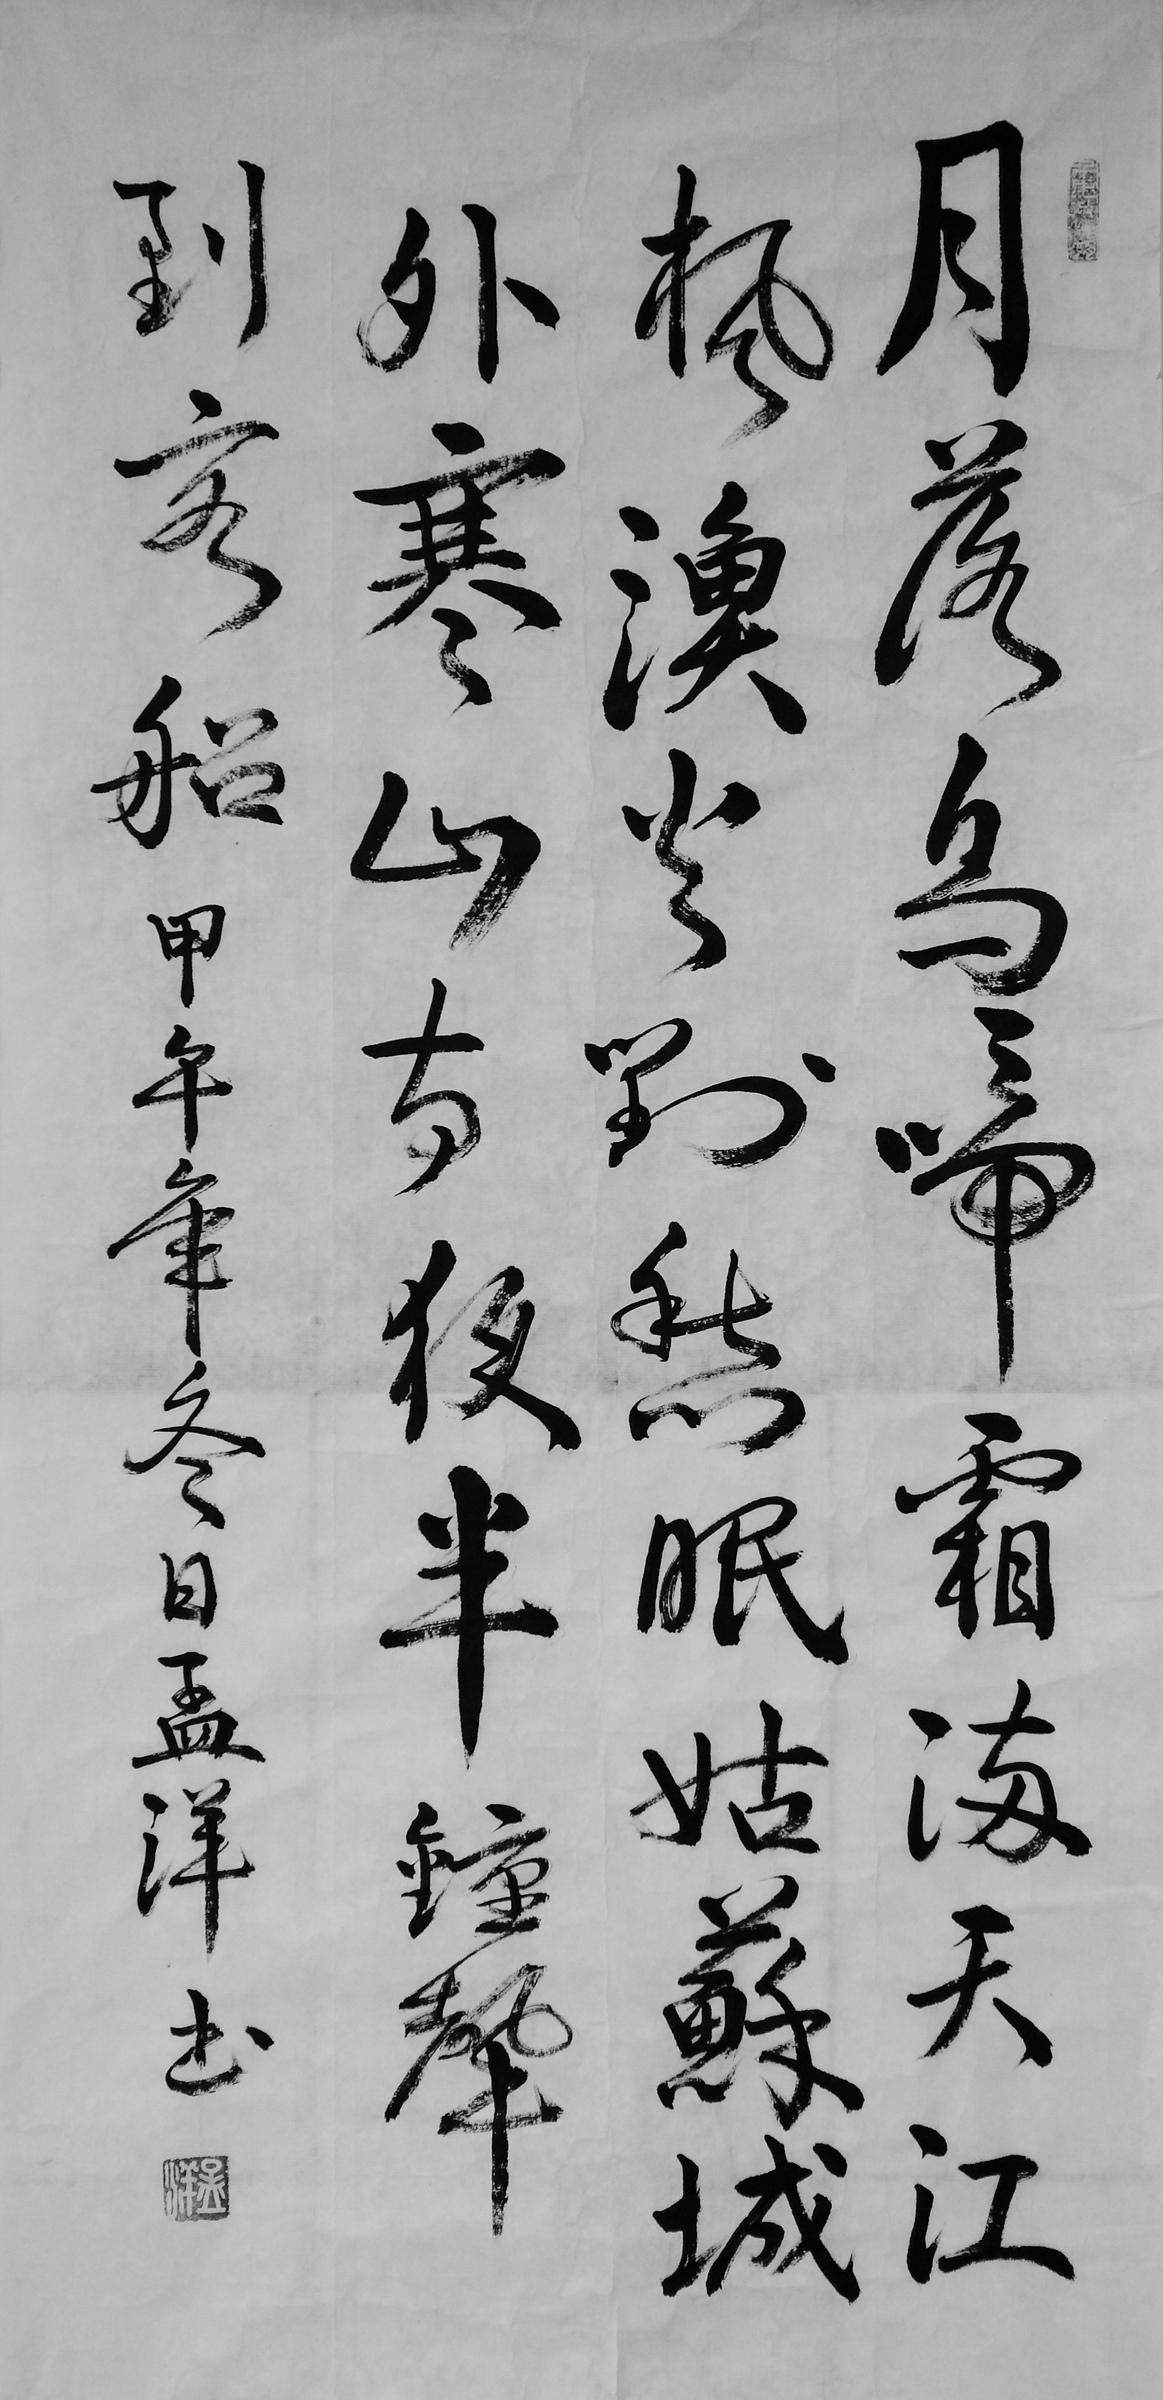 月落烏啼霜満天江
楓漁火對愁眠姑蘇城
外寒山寺夜半鐘聲
到客船甲午年冬日孟洋书
孟洋